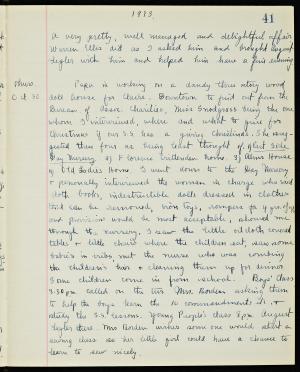 1933
41
A very pretty, well managed and delightful affair.
Warren Ellis did as I asked him and brought August
Legler with him and helped him have a fair evening
Thurs. Papa is working on a dandy three story wood
Oct. 26 doll house for Claire. Downtown to find out from the
Bureau of Assoc. Charities, Miss Snodgrass being the one
whom I interviewed, where and what to give for
Christmas if our S.S. has a giving Christmas. She sug-
gested these four as being least thought of. 1) East Side
Day Nursery 2) Florence Crittenden Home. 3) Alms House
4) Old Ladies Home. I went down to the Day Nursery
& personally interviewed the woman in charge who said
cloth books, indestructible dolls dressed in clothes
that can be removed, iron toys, rompers
and provision would be most acceptable, showed me
through the nursery, I saw the little oil cloth covered
tables & little chairs where the children eat, saw some
babies in cribs, met the nurse who was combing
the children's hair & cleaning them up for dinner.
Some children come in from school. Boys' class
3:30 pm called on the Mrs. Borden asking them
to help the boys learn the 10 commandments &
study the S.S. lessons. Young People's class 8 pm August
Legler there. Mrs. Borden wishes some one would start a
sewing class so her little girl could have a chance to
learn to sew nicely.